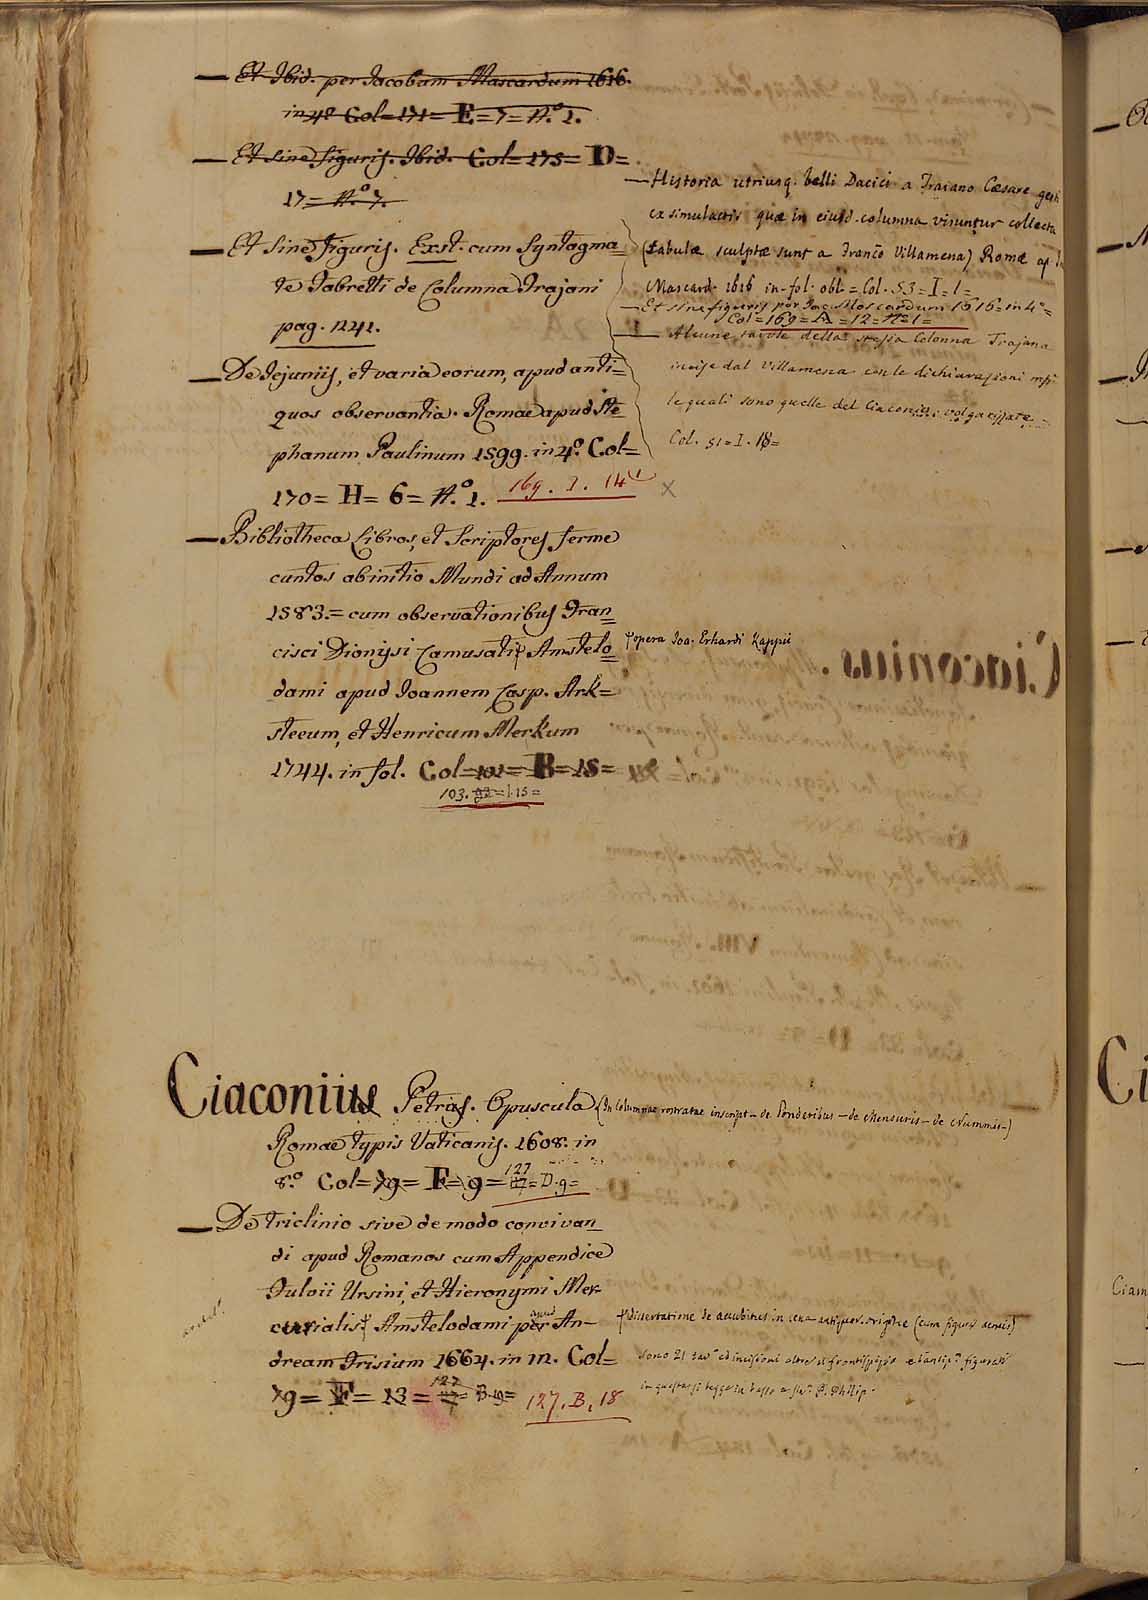 — Et Ibid. per Jacobum Mascardum 1616.
in 4º Col= 171= E= 7= Nº. 1.
— Et sine figuris. Ibid. Col= 175= D=
17= Nº. 7.
— Et sine figuris. Exst. cum Syntagma=
te Fabretti de Columna Trajani
pag. 1241.
— De Jejuniis, et varia eorum, apud anti=
quos observantia. Romae apud Ste=
phanum Paulinum 1599. in 4º. Col=
170= H= 6= Nº. 1. 169. I. 14
— Bibliotheca Libros, et Scriptores ferme
cuntos ab initio Mundi ad Annum
1583.= cum observationibus Fran=
cisci Dionysi Camusati Amstelo=
dami apud Joannem Casp. Ark=
steeum, et Henricum Merkum
1744. in fol. Col= 101= B= 15=
103. I. 15=
— Historia utriusq. belli Dacici a Traiano Cæsare gesti
ex simulacris quæ in eiusd. columna visuntur collecta
(tabulæ sculptæ sunt a Franco Villamena) Romæ ap.
Mascard. 1616 in-fol. obl.= Col. 53= I= 1=
— Et sine figuris per Jac. Mascardum 1616= in 4º=
Col= 169= A= 12= Nº 1=
— Alcune tavole della stessa Colonna Trajana
incise dal Villamena con le dichiarazioni mss.
le quali sono quelle del Ciaconio volgarizzate
Col. 51= I. 18=
opera Joa. Erhardi Kappii
Ciaconius Petrus. Opuscula (In Columnae rostratae inscript.– de Ponderibus – de Mensuris – de Nummis–)
Romae typis Vaticanis. 1608. in
8.º Col= 79= F= 9= 127 = D. 9=
— De Triclinio sive de modo convivan=
di apud Romanos cum Appendice
Fulvii Ursini, et Hieronymi Mer-
curialis Amstelodami apud An-
dream Frisium 1664. in 12. Col=
79= F= 13= 127 = B. 127. B. 18
dissertatione de accubitus in cena antiquor. origine (cum figuris aeneis)
sono 21 tav.